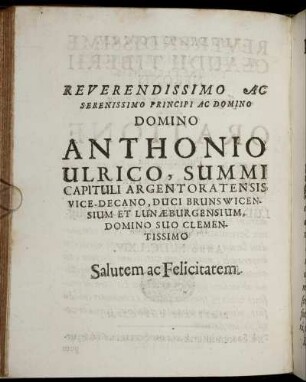 REVERENDISSIMO AC
SERENISSIMO PRINCIPI AC DOMINO
DOMINO
ANTHONIO
ULRICO, SUMMI
CAPITULI ARGENTORATENSIS
VICE-DECANO, DUCI BRUNSWICEN-
SIUM ET LUNÆBURGENSIUM,
DOMINO SUO CLEMEN-
TISSIMO
Salutem ac Felicitatem.